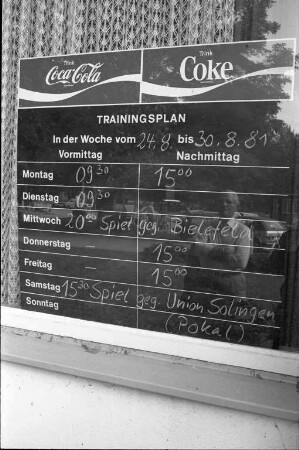 Think Think
Coca-Cola Coke
TRAININGSPLAN
In der Woche vom 24.8. bis 30.8.81
Vormittag Nachmittag
Montag 09³⁰ 15⁰⁰
Dienstag 09³⁰ –
Mittwoch 20⁰⁰ Spiel geg. Bielefeld
Donnerstag – 15⁰⁰
Freitag – 15⁰⁰
Samstag 15³⁰ Spiel geg. Union Solingen
Sonntag (Pokal)